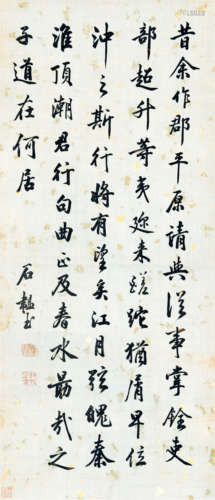 昔余作郡平原請與從事掌銓吏
部超升等夷邇来蹉跎猶屑早位
沖之斯行將有望矣江月弦魄秦
淮頂潮君行句曲正及春水勗哉之
子道在何居
石韞玉